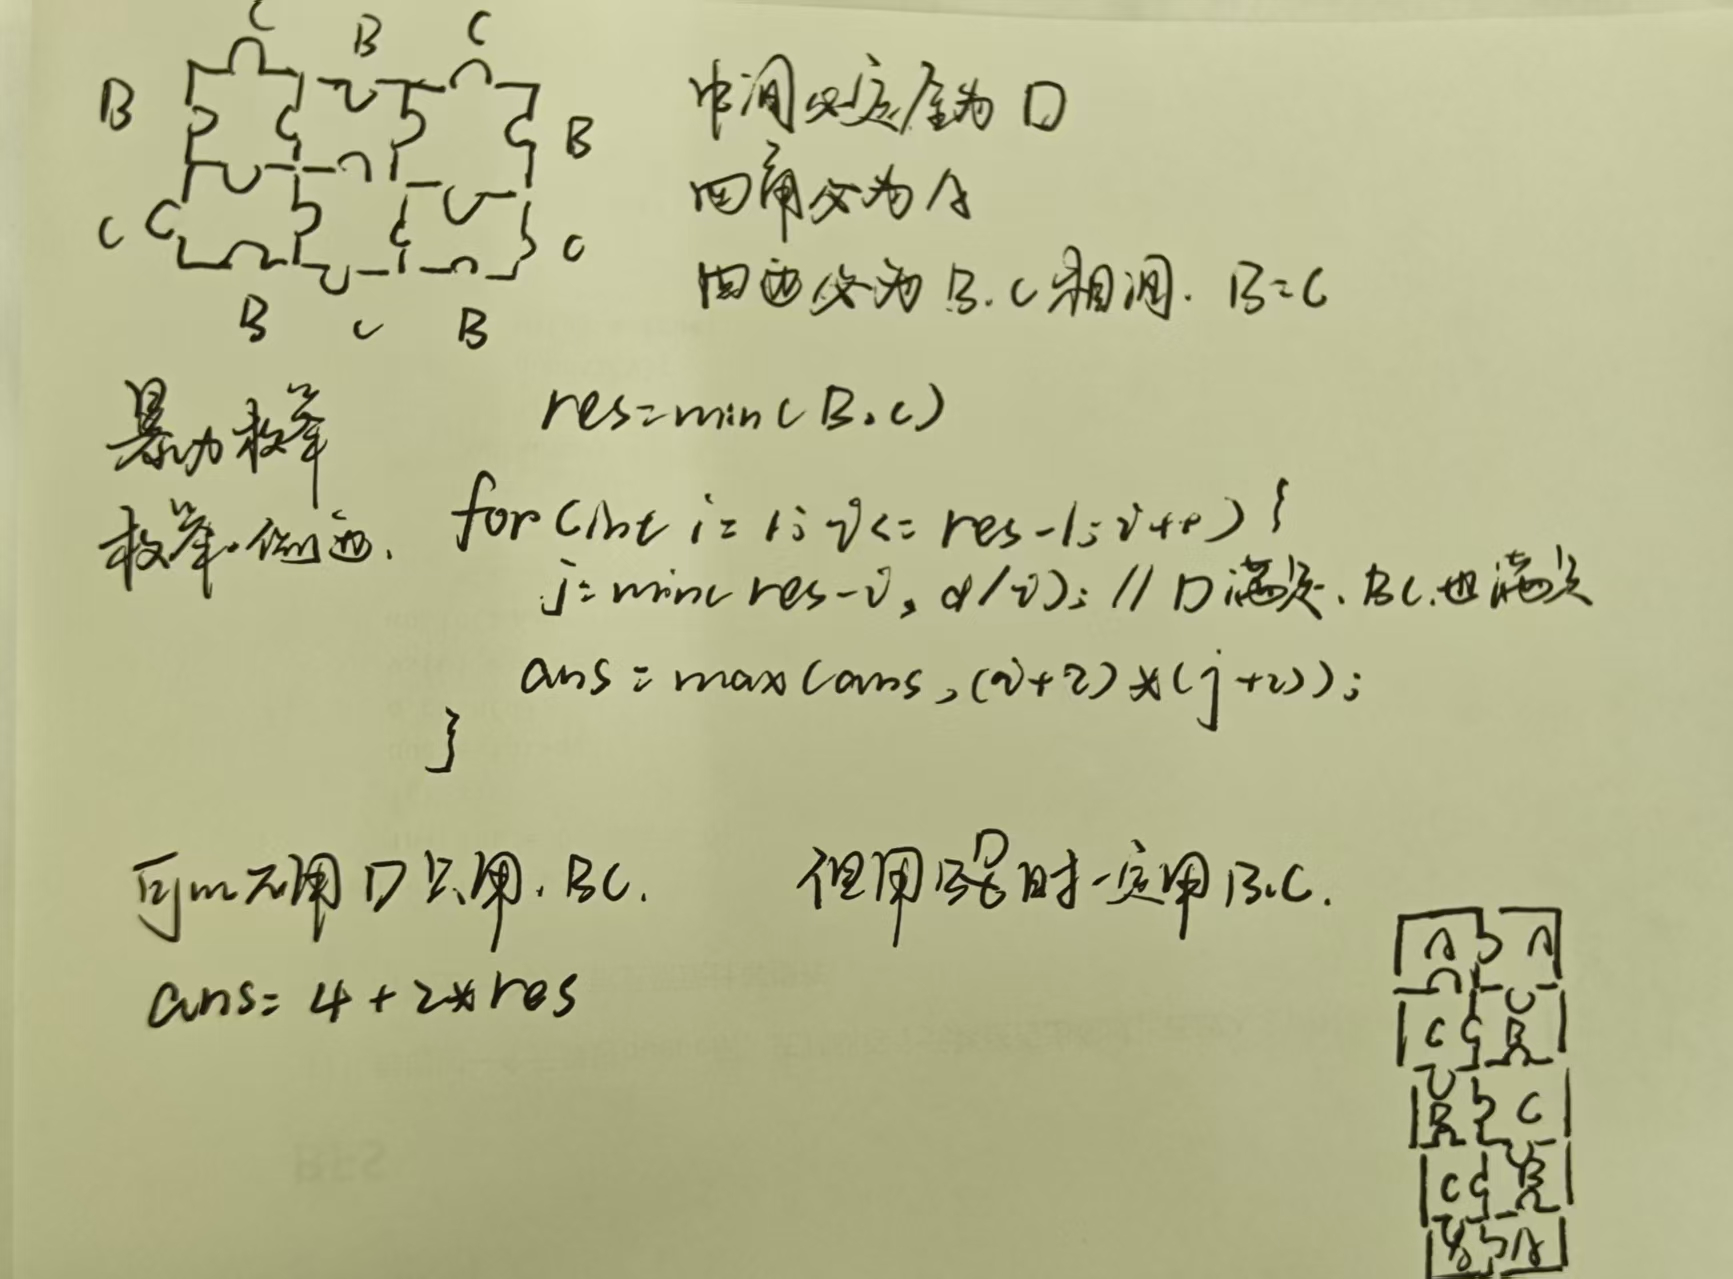 C B C
B B
C C
B C B
中间必定全为 D
四角必为 A
四边必为 B.C 相间. B=C
暴力枚举
枚举.侧边.
res=min(B.C)
for(int i=1; i<=res-1; i++){
j=min(res-i, d/i); // D满足. BC.也满足
ans=max(ans,(i+2)*(j+2));
}
可以不用D只用.BC.
但用D时一定用B.C.
ans=4+2*res
A A
C B
B C
C B
A A